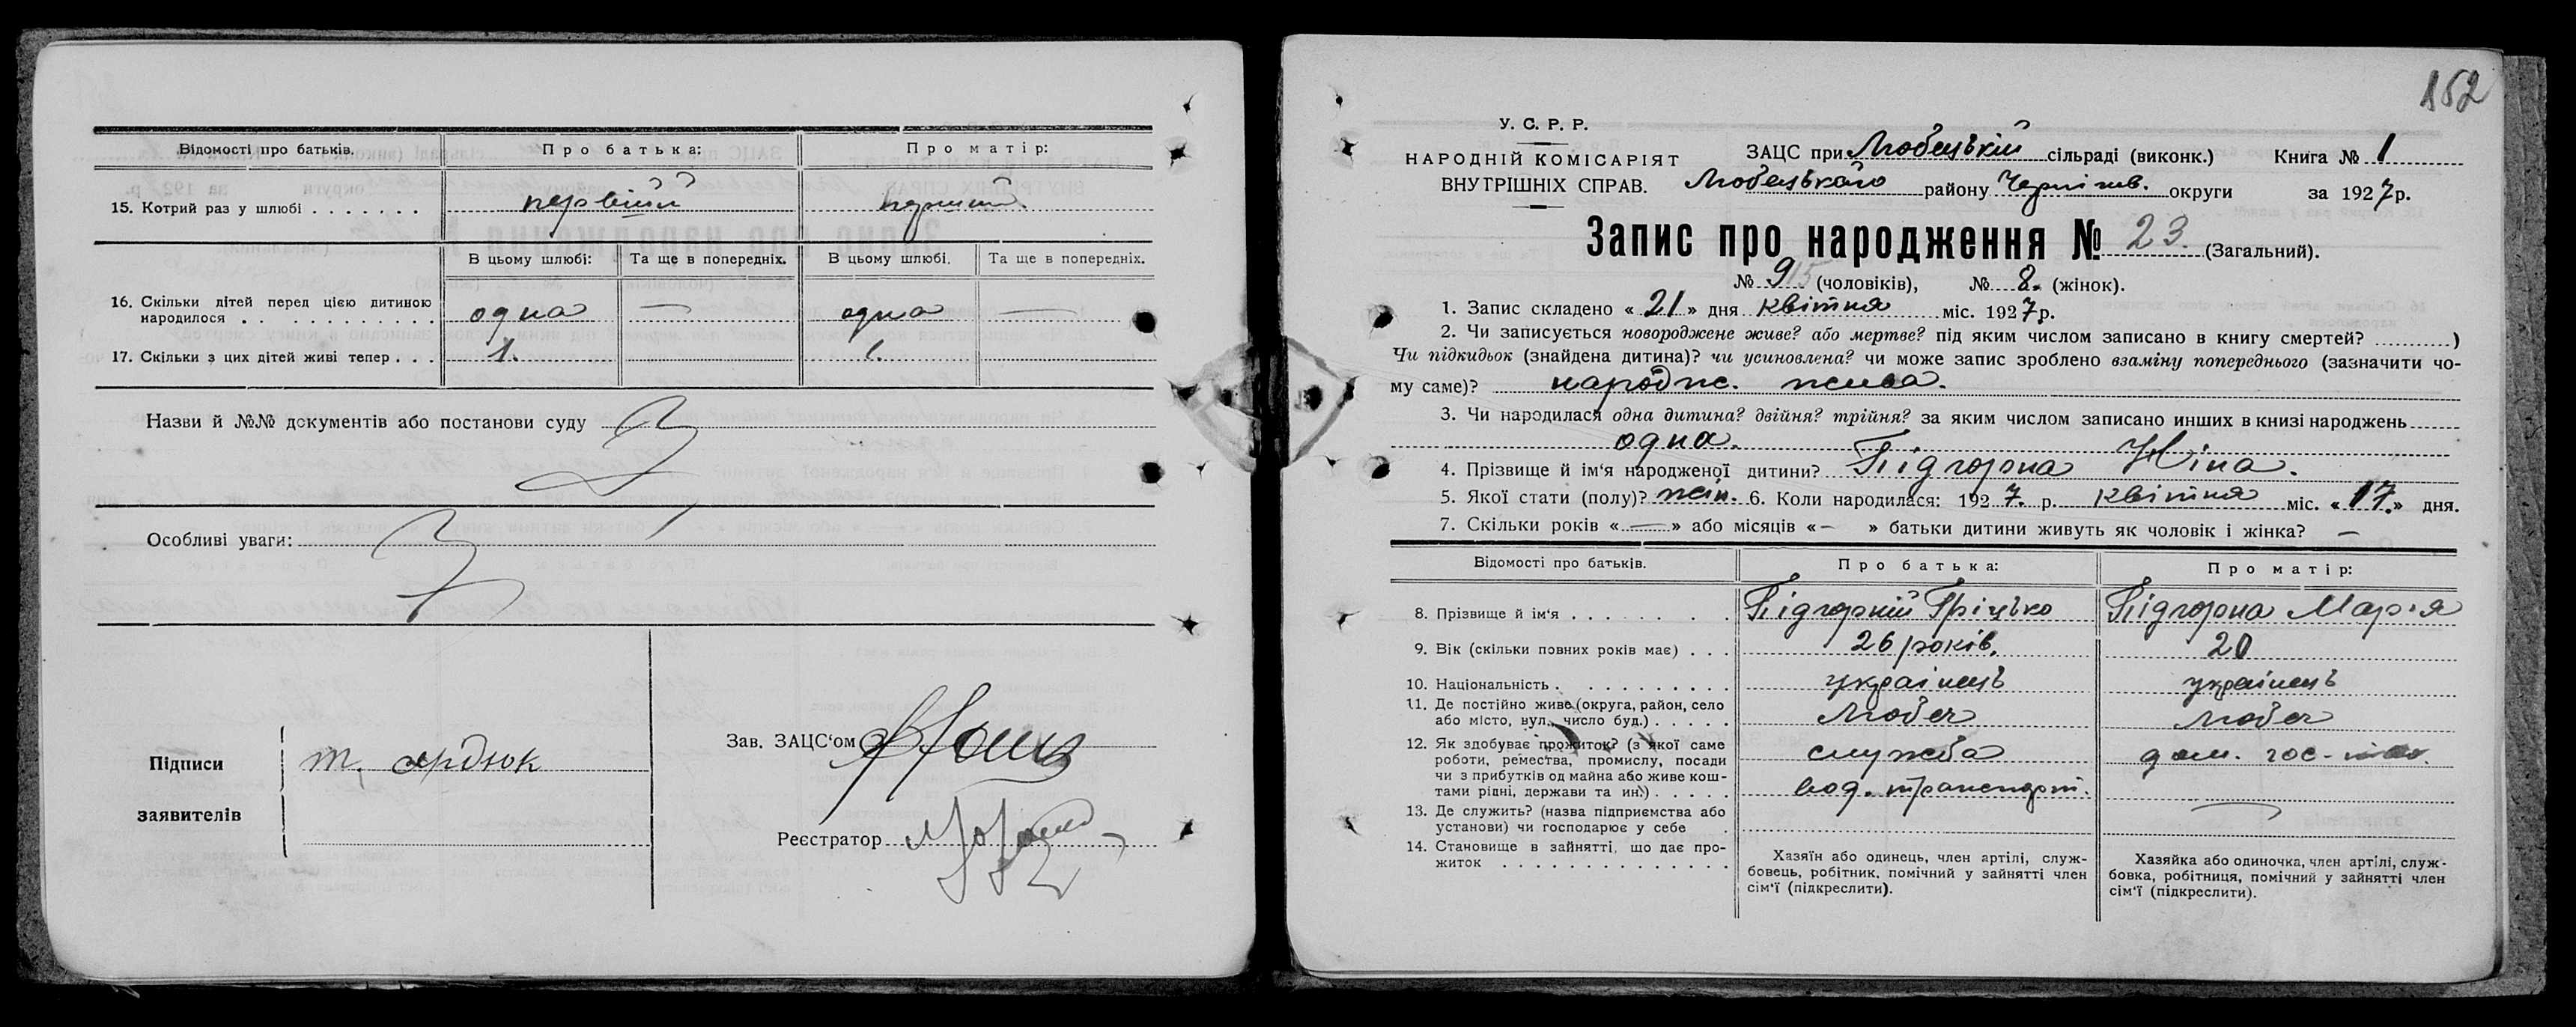 Відомості про батьків.
Про батька:
Про матір:
15. Котрий раз у шлюбі . . . . . . .
первіій
перший
В цьому шлюбі:
Та ще в попередніх.
В цьому шлюбі.
Та ще в попередніх.
16. Скільки дітей перед цією дитиною
народилося . . . . . . . . . .
одна — одна —
17. Скільки з цих дітей живі тепер . . .
1. 1.
Назви й №№ документів або постанови суду
Особливі уваги:
Підписи
заявителів
Зав. ЗАЦС'ом
Реєстратор
152
У. С. Р. Р.
НАРОДНІЙ КОМІСАРІЯТ
ВНУТРІШНІХ СПРАВ.
ЗАЦС при Любецькій сільраді (виконк.) Книга № 1
Любецького району Чернігів. округи за 1927 р.
Запис про народження № 23 (Загальний).
№ 9 (чоловіків), № 8. (жінок).
1. Запис складено «21» дня квітня міс. 1927 р.
2. Чи записується новороджене живе? або мертве? під яким числом записано в книгу смертей? ..........)
Чи підкидьок (знайдена дитина)? чи усиновлена? чи може запис зроблено взаміну попереднього (зазначити чо-
му саме)? народж. жива.
3. Чи народилася одна дитина? двійня? трійня? за яким числом записано инших в книзі народжень
одна.
4. Прізвище й ім'я народженої дитини? Підгорна Ніна.
5. Якої стати (полу)? жін. 6. Коли народилася: 1927. р. квітня міс. «17.» дня.
7. Скільки років «—» або місяців «—» батьки дитини живуть як чоловік і жінка? —
Відомості про батьків.
Про батька:
Про матір:
8. Прізвище й ім'я . . . . . . . .
Підгорній Гріцько
Підгорна Марія
9. Вік (скільки повних років має) . . .
26 років.
20
10. Національність . . . . . . . . . .
українець
українець
11. Де постійно живе (округа, район, село
або місто, вул., число буд.) . . . . .
Любеч
Любеч
12. Як здобуває прожиток? (з якої саме
роботи, ремества, промислу, посади
чи з прибутків од майна або живе кош-
тами рідні, держави та ин.) . . . . .
служба
вод. транспорт.
дом. гос-
13. Де служить? (назва підприємства або
установи) чи господарює у себе
—
14. Становище в зайнятті, що дає про-
житок . . . . . . . . . . . . .
Хазяїн або одинець, член артілі, служ-
бовець, робітник, помічний у зайнятті член
сім'ї (підкреслити).
Хазяйка або одиночка, член артілі, служ-
бовка, робітниця, помічний у зайнятті член
сім'ї (підкреслити).